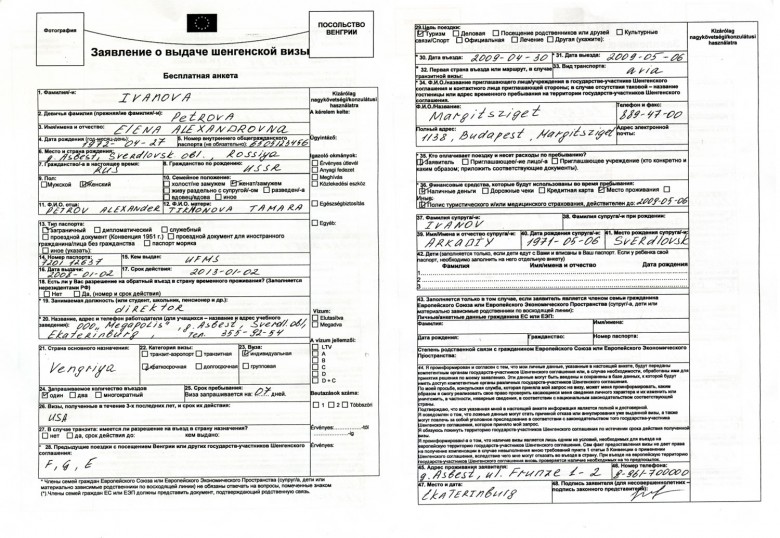 Фотография
ПОСОЛЬСТВО
ВЕНГРИИ
Заявление о выдаче шенгенской визы
Бесплатная анкета
1. Фамилия/-и:
IVANOVA
Kizárólag
nagykövetségi/konzulátusi
használatra
2. Девичья фамилия (прежняя/ие фамилия/-и):
PETROVA
A kérelem kelte:
3. Имя/имена и отчество:
ELENA ALEXANDROVNA
4. Дата рождения (год-месяц-день):
1972-04-27
5. Номер внутреннего общегражданского
паспорта (не обязательно):
6505123456
Ügyintéző:
6. Место и страна рождения:
g. Asbest, Sverdlovsk obl. Rossiya
Igazoló okmányok:
7. Гражданство/-а в настоящее время:
RUS
8. Гражданство по рождению
USSR
Érvényes útlevél
Anyagi fedezet
Meghívás
Közlekedési eszköz
9. Пол:
Мужской Женский
10. Семейное положение:
холост/не замужем женат/замужем
живу раздельно с супругой/-ом разведен/-а
вдовец/вдова иное
Egészségbiztosítás
11. Ф.И.О. отца:
PETROV ALEXANDER
12. Ф.И.О. матери:
TIKHONOVA TAMARA
Egyéb:
13. Тип паспорта:
заграничный дипломатический служебный
проездной документ (Конвенция 1951 г.) проездной документ для иностранного
гражданина/лица без гражданства паспорт моряка
иное (указать):
14. Номер паспорта:
15. Кем выдан:
UFMS
16. Дата выдачи:
2008-01-02
17. Срок действия:
2013-01-02
18. Есть ли у Вас разрешение на обратный въезд в страну временного проживания? (Заполняется
нерезидентами РФ)
Нет Да, (номер и срок действия)
* 19. Занимаемая должность (или студент, школьник, пенсионер и др.):
direktor
Vízum:
Elutasítva
Megadva
* 20. Название, адрес и телефон работодателя (для учащихся – название и адрес учебного
заведения):
OOO, Megapolis, g. Asbest, Sverdl. obl,
Ekaterinburg тел. 355-92-54
A vízum jellemzői:
LTV
A
B
C
D
D + C
21. Страна основного назначения:
Vengriya
22. Категория визы:
транзит-аэропорт транзитная
краткосрочная долгосрочная
23. Виза:
индивидуальная
групповая
24. Запрашиваемое количество въездов
один два многократный
25. Срок пребывания:
Виза запрашивается на: 07 дней.
Beutazások száma:
1 2 Többszöri
26. Визы, полученные в течение 3-х последних лет, и срок их действия:
USA
27. В случае транзита: имеется ли разрешение на въезд в страну назначения?
нет да, срок действия до: кем выдано:
Érvényes:
* 28. Предыдущие поездки с посещением Венгрии или других государств-участников Шенгенского
соглашения:
F, G, E
* Члены семей граждан Европейского Союза или Европейского Экономического Пространства (супруг/а, дети или
материально зависимые родственники по восходящей линии) не обязаны отвечать на вопросы, помеченные знаком
(*) Члены семей граждан ЕС или ЕЭП должны представить документ, подтверждающий родственную связь.
29.Цель поездки:
Туризм Деловая Посещение родственников или друзей Культурные
связи/Спорт Официальная Лечение Другая (укажите):
Kizárólag
nagykövetségi/konzulátusi
használatra
* 30. Дата въезда: 2009-04-30
* 31. Дата выезда: 2009-05-06
* 32. Первая страна въезда или маршрут, в случае
транзитной визы:
33. Вид транспорта:
avia
* 34. Ф.И.О./название приглашающего лица/учреждения в государстве-участнике Шенгенского
соглашения и контактного лица приглашающей стороны; в случае отсутствия таковой – название
гостиницы или адрес временного пребывания на территории государств-участников Шенгенского
соглашения.
Ф.И.О./Название:
Margitsziget
Телефон и факс:
889-47-00
Полный адрес:
1138, Budapest, Margitsziget
Адрес электронной
почты:
* 35. Кто оплачивает поездку и несет расходы по пребыванию?
Заявитель Приглашающее/-ие лицо/-а Приглашающее учреждение (кто конкретно и
каким образом; приложить соответствующие документы).
* 36. Финансовые средства, которые будут использованы во время пребывания:
Наличные деньги Дорожные чеки Кредитная карта Место проживания
Иные:
Полис туристического и/или медицинского страхования, действителен до: 2009-05-06
37. Фамилия супруга/-и:
IVANOV
38. Фамилия супруга/-и при рождении:
39. Имя/Имена и отчество супруга/-и:
ARKADIY
40. Дата рождения супруга/-и:
1971-05-06
41. Место рождения супруга/-и:
SVERDLOVSK
42. Дети (заполняется только, если дети едут с Вами и вписаны в Ваш паспорт. Если у ребенка свой
паспорт, необходимо заполнить на него отдельную анкету)
Фамилия Имя/имена и отчество Дата рождения
1
2
3
43. Заполняется только в том случае, если заявитель является членом семьи гражданина
Европейского Союза или Европейского Экономического Пространства (супруг/а, дети или
материально зависимые родственники по восходящей линии):
Личные/паспортные данные гражданина ЕС или ЕЭП:
Фамилия: Имя/имена:
Дата рождения: Гражданство: Номер паспорта:
Степень родственной связи с гражданином Европейского Союза или Европейского Экономического
Пространства:
45. Адрес проживания заявителя:
g. Asbest, ul. Frunze 1-2
46. Номер телефона:
8-961-700000
47. Место и дата:
Ekaterinburg
48. Подпись заявителя (для несовершеннолетних –
подпись законного представителя):